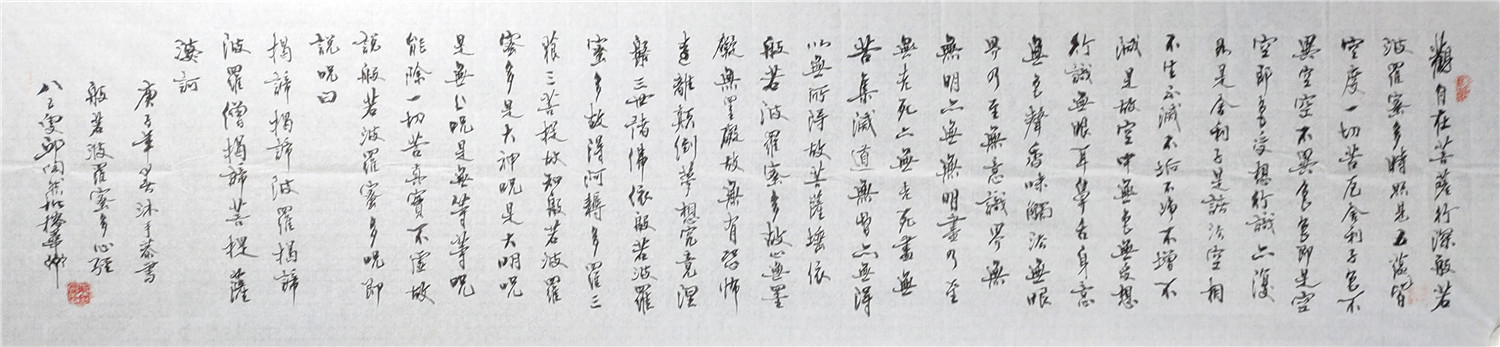 觀自在菩薩行深般若
波羅蜜多時照見五蘊皆
空度一切苦厄舍利子色不
異空空不異色色即是空
空即是色受想行識亦復
如是舍利子是諸法空相
不生不滅不垢不淨不增不
減是故空中無色無受想
行識無眼耳鼻舌身意
無色聲香味觸法無眼
界乃至無意識界無
無明亦無無明盡乃至
無老死亦無老死盡無
苦集滅道無智亦無得
以無所得故菩提薩埵依
般若波羅蜜多故心無罣
礙無罣礙故無有恐怖
遠離顛倒夢想究竟涅
槃三世諸佛依般若波羅
蜜多故得阿耨多羅三
藐三菩提故知般若波羅
蜜多是大神呪是大明呪
是無上呪是無等等呪
能除一切苦真實不虛故
說般若波羅蜜多呪即
說呪曰
揭諦揭諦波羅揭諦
波羅僧揭諦菩提薩
婆訶
庚子年 沐手恭書
般若波羅蜜多心經
八五叟